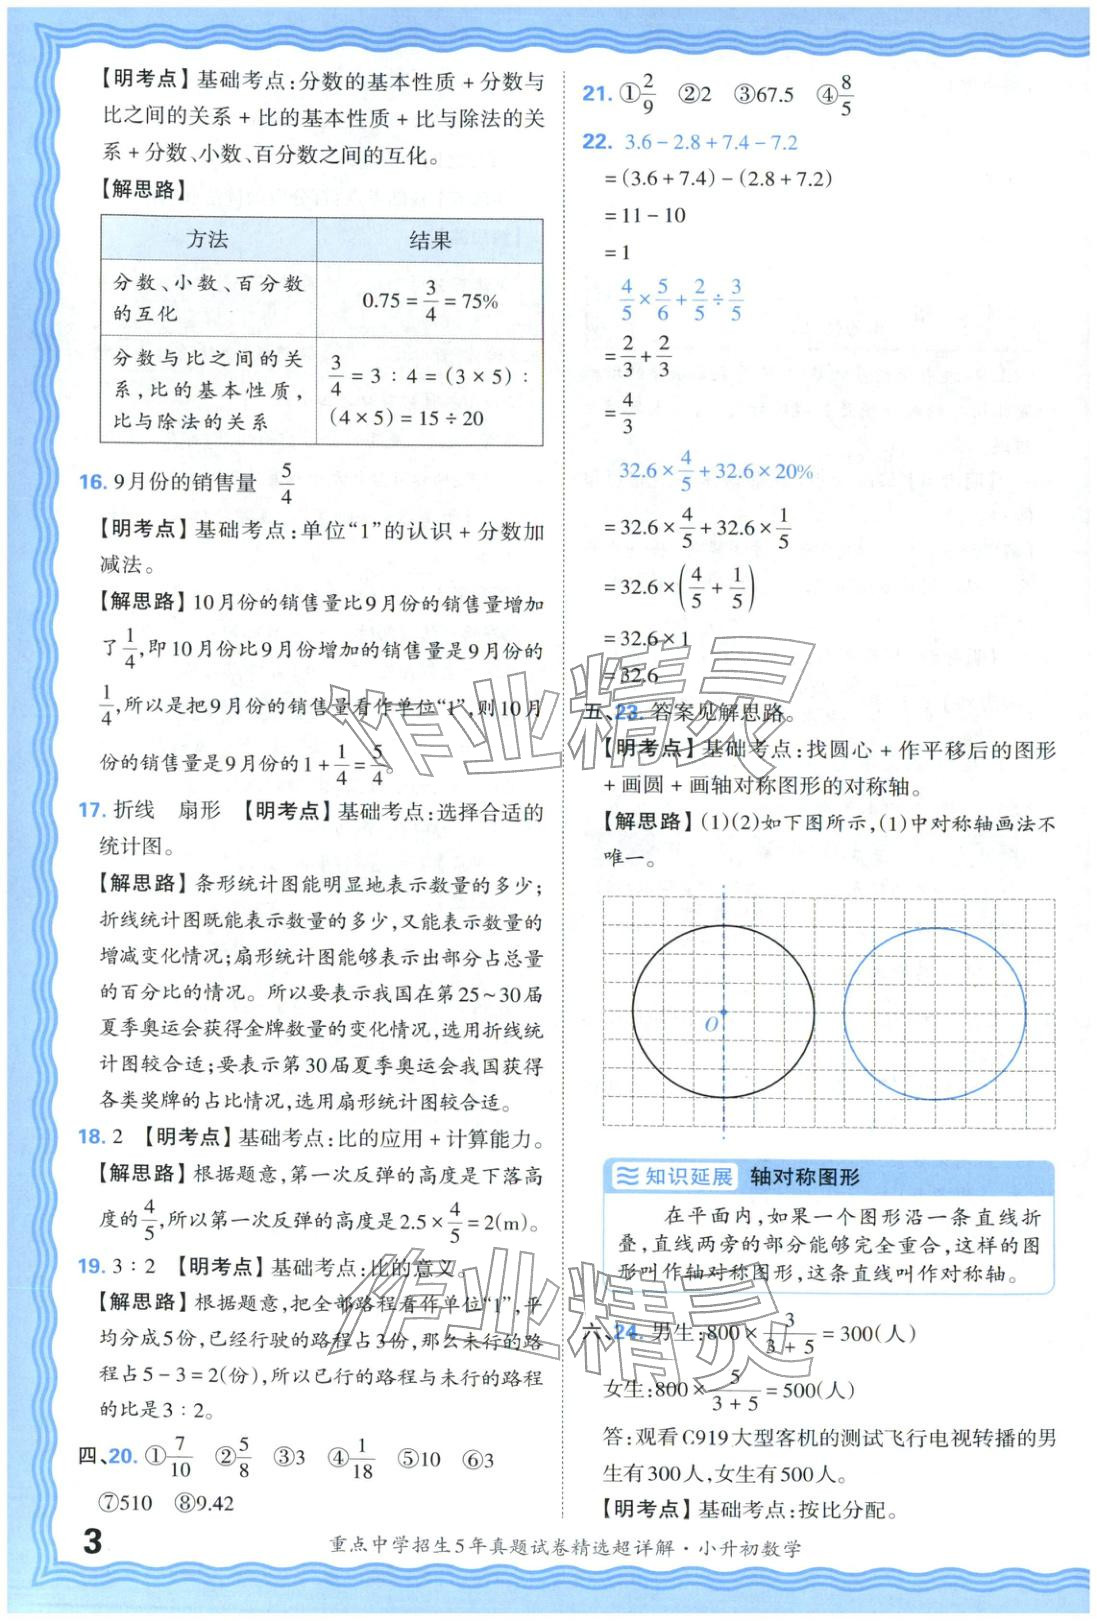 【明考点】基础考点:分数的基本性质+分数与
比之间的关系+比的基本性质+比与除法的关
系+分数、小数、百分数之间的互化。
【解思路】
方法 结果
分数、小数、百分数
的互化
0.75 = 3/4 = 75%
分数与比之间的关
系,比的基本性质,
比与除法的关系
3/4 = 3 : 4 = (3×5) :
(4×5) = 15÷20
16. 9月份的销售量 5/4
【明考点】基础考点:单位“1”的认识+分数加
减法。
【解思路】10月份的销售量比9月份的销售量增加
了1/4,即10月份比9月份增加的销售量是9月份的
1/4,所以是把9月份的销售量看作单位“1”,则10月
份的销售量是9月份的1+1/4=5/4。
17. 折线 扇形 【明考点】基础考点:选择合适的
统计图。
【解思路】条形统计图能明显地表示数量的多少;
折线统计图既能表示数量的多少,又能表示数量的
增减变化情况;扇形统计图能够表示出部分占总量
的百分比的情况。所以要表示我国在第25~30届
夏季奥运会获得金牌数量的变化情况,选用折线统
计图较合适;要表示第30届夏季奥运会我国获得
各类奖牌的占比情况,选用扇形统计图较合适。
18. 2 【明考点】基础考点:比的应用+计算能力。
【解思路】根据题意,第一次反弹的高度是下落高
度的4/5,所以第一次反弹的高度是2.5×4/5=2(m)。
19. 3 : 2 【明考点】基础考点:比的意义。
【解思路】根据题意,把全部路程看作单位“1”,平
均分成5份,已经行驶的路程占3份,那么未行的路
程占5-3=2(份),所以已行的路程与未行的路程
的比是3 : 2。
四、20. ①7/10 ②5/8 ③3 ④1/18 ⑤10 ⑥3
⑦510 ⑧9.42
21. ①2/9 ②2 ③67.5 ④8/5
22. 3.6-2.8+7.4-7.2
=(3.6+7.4)-(2.8+7.2)
=11-10
=1
4/5×5/6+2/5÷3/5
=2/3+2/3
=4/3
32.6×4/5+32.6×20%
=32.6×4/5+32.6×1/5
=32.6×(4/5+1/5)
=32.6×1
=32.6
五、23. 答案见解思路。
【明考点】基础考点:找圆心+作平移后的图形
+画圆+画轴对称图形的对称轴。
【解思路】(1)(2)如下图所示,(1)中对称轴画法不
唯一。
O
知识延展 轴对称图形
在平面内,如果一个图形沿一条直线折
叠,直线两旁的部分能够完全重合,这样的图
形叫作轴对称图形,这条直线叫作对称轴。
六、24. 男生:800×3/(3+5)=300(人)
女生:800×5/(3+5)=500(人)
答:观看C919大型客机的测试飞行电视转播的男
生有300人,女生有500人。
【明考点】基础考点:按比分配。
作业精灵
作业精灵
3
重点中学招生5年真题试卷精选超详解·小升初数学